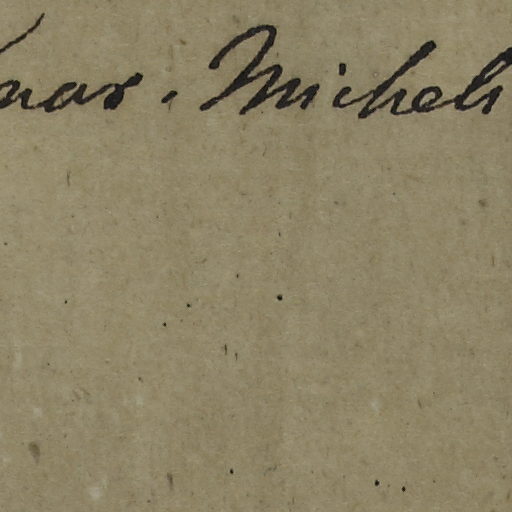 mar. Micheli